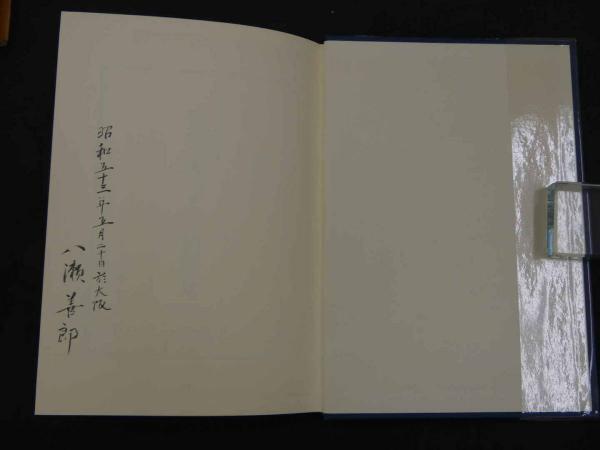 昭和五十三年五月二十日於大阪
八瀬善郎